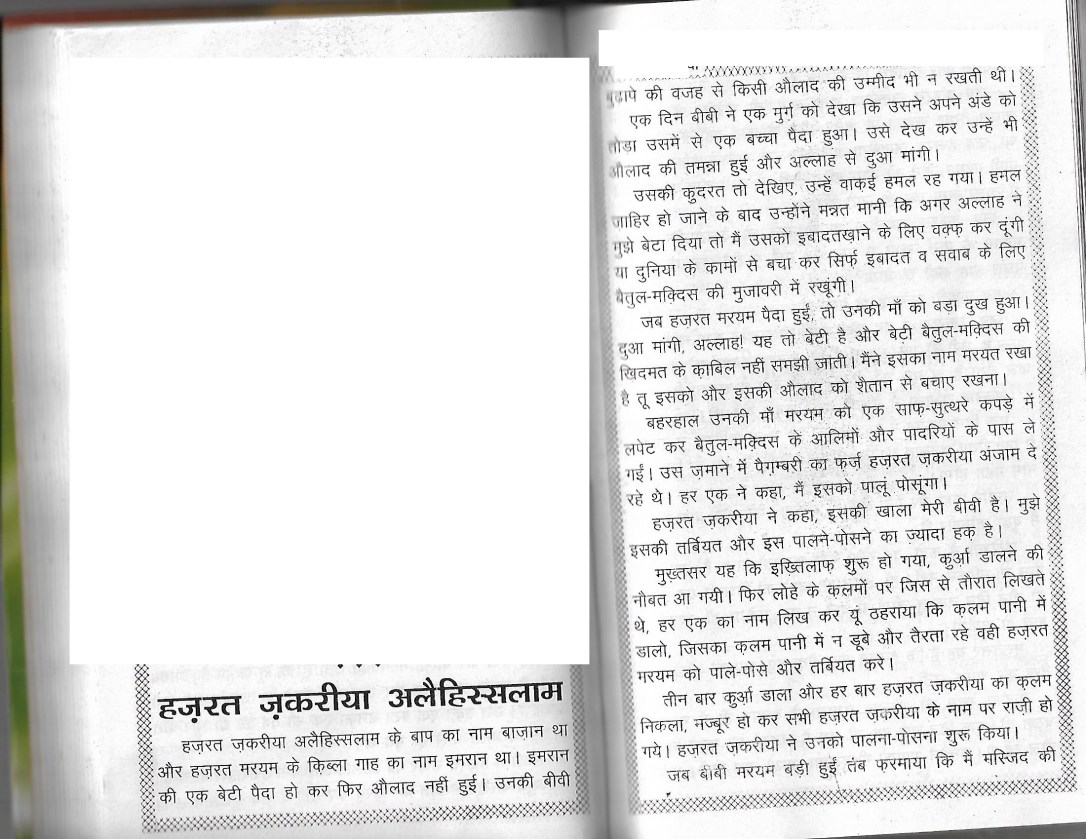 हज़रत ज़करीया अलैहिस्सलाम
हज़रत ज़करीया अलैहिस्सलाम के बाप का नाम बाज़ान था
और हज़रत मरयम के क़िब्ला गाह का नाम इमरान था। इमरान
की एक बेटी पैदा हो कर फिर औलाद नहीं हुई। उनकी बीवी
बुढ़ापे की वजह से किसी औलाद की उम्मीद भी न रखती थी।
एक दिन बीबी ने एक मुर्ग़ को देखा कि उसने अपने अंडे को
तोडा उसमें से एक बच्चा पैदा हुआ। उसे देख कर उन्हें भी
औलाद की तमन्ना हुई और अल्लाह से दुआ मांगी।
उसकी कुदरत तो देखिए, उन्हें वाक़ई हमल रह गया। हमल
ज़ाहिर हो जाने के बाद उन्होंने मन्नत मानी कि अगर अल्लाह ने
मुझे बेटा दिया तो मैं उसको इबादतख़ाने के लिए वक़्फ़ कर दूंगी
या दुनिया के कामों से बचा कर सिर्फ़ इबादत व सवाब के लिए
बैतुल-मक़्दिस की मुजावरी में रखूंगी।
जब हज़रत मरयम पैदा हुईं, तो उनकी माँ को बड़ा दुख हुआ।
दुआ मांगी, अल्लाह! यह तो बेटी है और बेटी बैतुल-मक़्दिस की
ख़िदमत के क़ाबिल नहीं समझी जाती। मैंने इसका नाम मरयत रखा
है तू इसको और इसकी औलाद को शैतान से बचाए रखना।
बहरहाल उनकी माँ मरयम को एक साफ़-सुत्थरे कपड़े में
लपेट कर बैतुल-मक़्दिस के आलिमों और पादरियों के पास ले
गईं। उस ज़माने में पैग़म्बरी का फ़र्ज़ हज़रत ज़करीया अंजाम दे
रहे थे। हर एक ने कहा, मैं इसको पालूं पोसूंगा।
हज़रत ज़करीया ने कहा, इसकी खाला मेरी बीवी है। मुझे
इसकी तर्बियत और इस पालने-पोसने का ज़्यादा हक़ है।
मुख़्तसर यह कि इख़्तिलाफ़ शुरू हो गया, कुर्आ डालने की
नौबत आ गयी। फिर लोहे के क़लमों पर जिस से तौरात लिखते
थे, हर एक का नाम लिख कर यूं ठहराया कि क़लम पानी में
डालो, जिसका क़लम पानी में न डूबे और तैरता रहे वही हज़रत
मरयम को पाले-पोसे और तर्बियत करे।
तीन बार कुर्आ डाला और हर बार हज़रत ज़करीया का क़लम
निकला, मज्बूर हो कर सभी हज़रत ज़करीया के नाम पर राज़ी हो
गये। हज़रत ज़करीया ने उनको पालना-पोसना शुरू किया।
जब बीबी मरयम बड़ी हुईं तब फ़रमाया कि मैं मस्जिद की